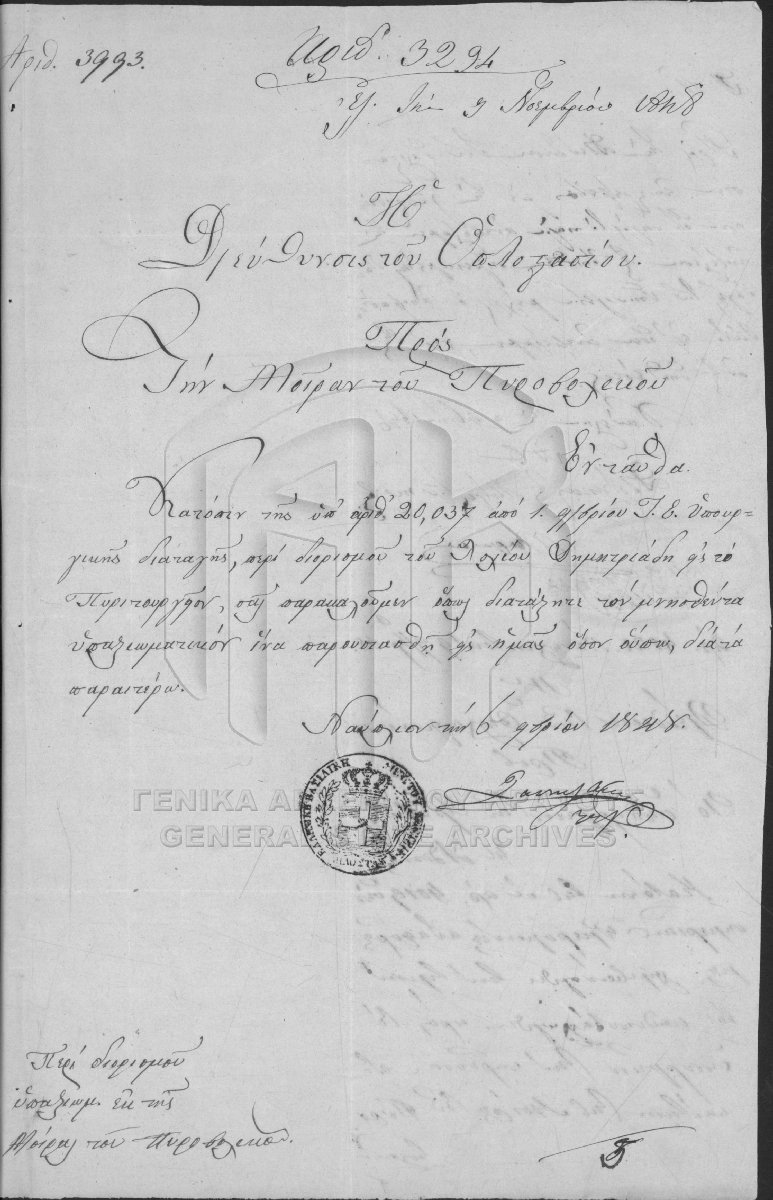 Αριθ. 3993.
Αριθ. 3294
Ελ. την 9 Νοεμβρίου 1848
Ἡ
Διεύθυνσις τοῦ Ὁπλοστασίου.
Πρὸς
Τὴν Μοῖραν τοῦ Πυροβολικοῦ
Ἐνταῦθα.
Κατόπιν τῆς ὑπ' ἀριθ. 20,037 ἀπὸ 1. 9βρίου Ἐ. Ε. ὑπουρ-
γικῆς διαταγῆς, περὶ διορισμοῦ τοῦ Λοχίου Δημητριάδη εἰς τὸ
Πυριτουργεῖον, σᾶς παρακαλοῦμεν ὅπως διατάξητε τὸν μνησθέντα
ὑπαξιωματικὸν ἵνα παρουσιασθῇ εἰς ἡμᾶς ὅσον οὔπω, διὰ τὰ
παραιτέρω.
Ναύπλιον τὴν 6 9βρίου 1848.
ΕΛΛΗΝΙΚΗ ΒΑΣΙΛΙΚΗ
ΓΕΝΙΚΑ ΑΡΧΕΙΑ ΤΟΥ ΚΡΑΤΟΥΣ
GENERAL STATE ARCHIVES
Περὶ διορισμοῦ
ὑπαξιωμ. ἐκ τῆς
Μοίρας τοῦ Πυροβολικοῦ.